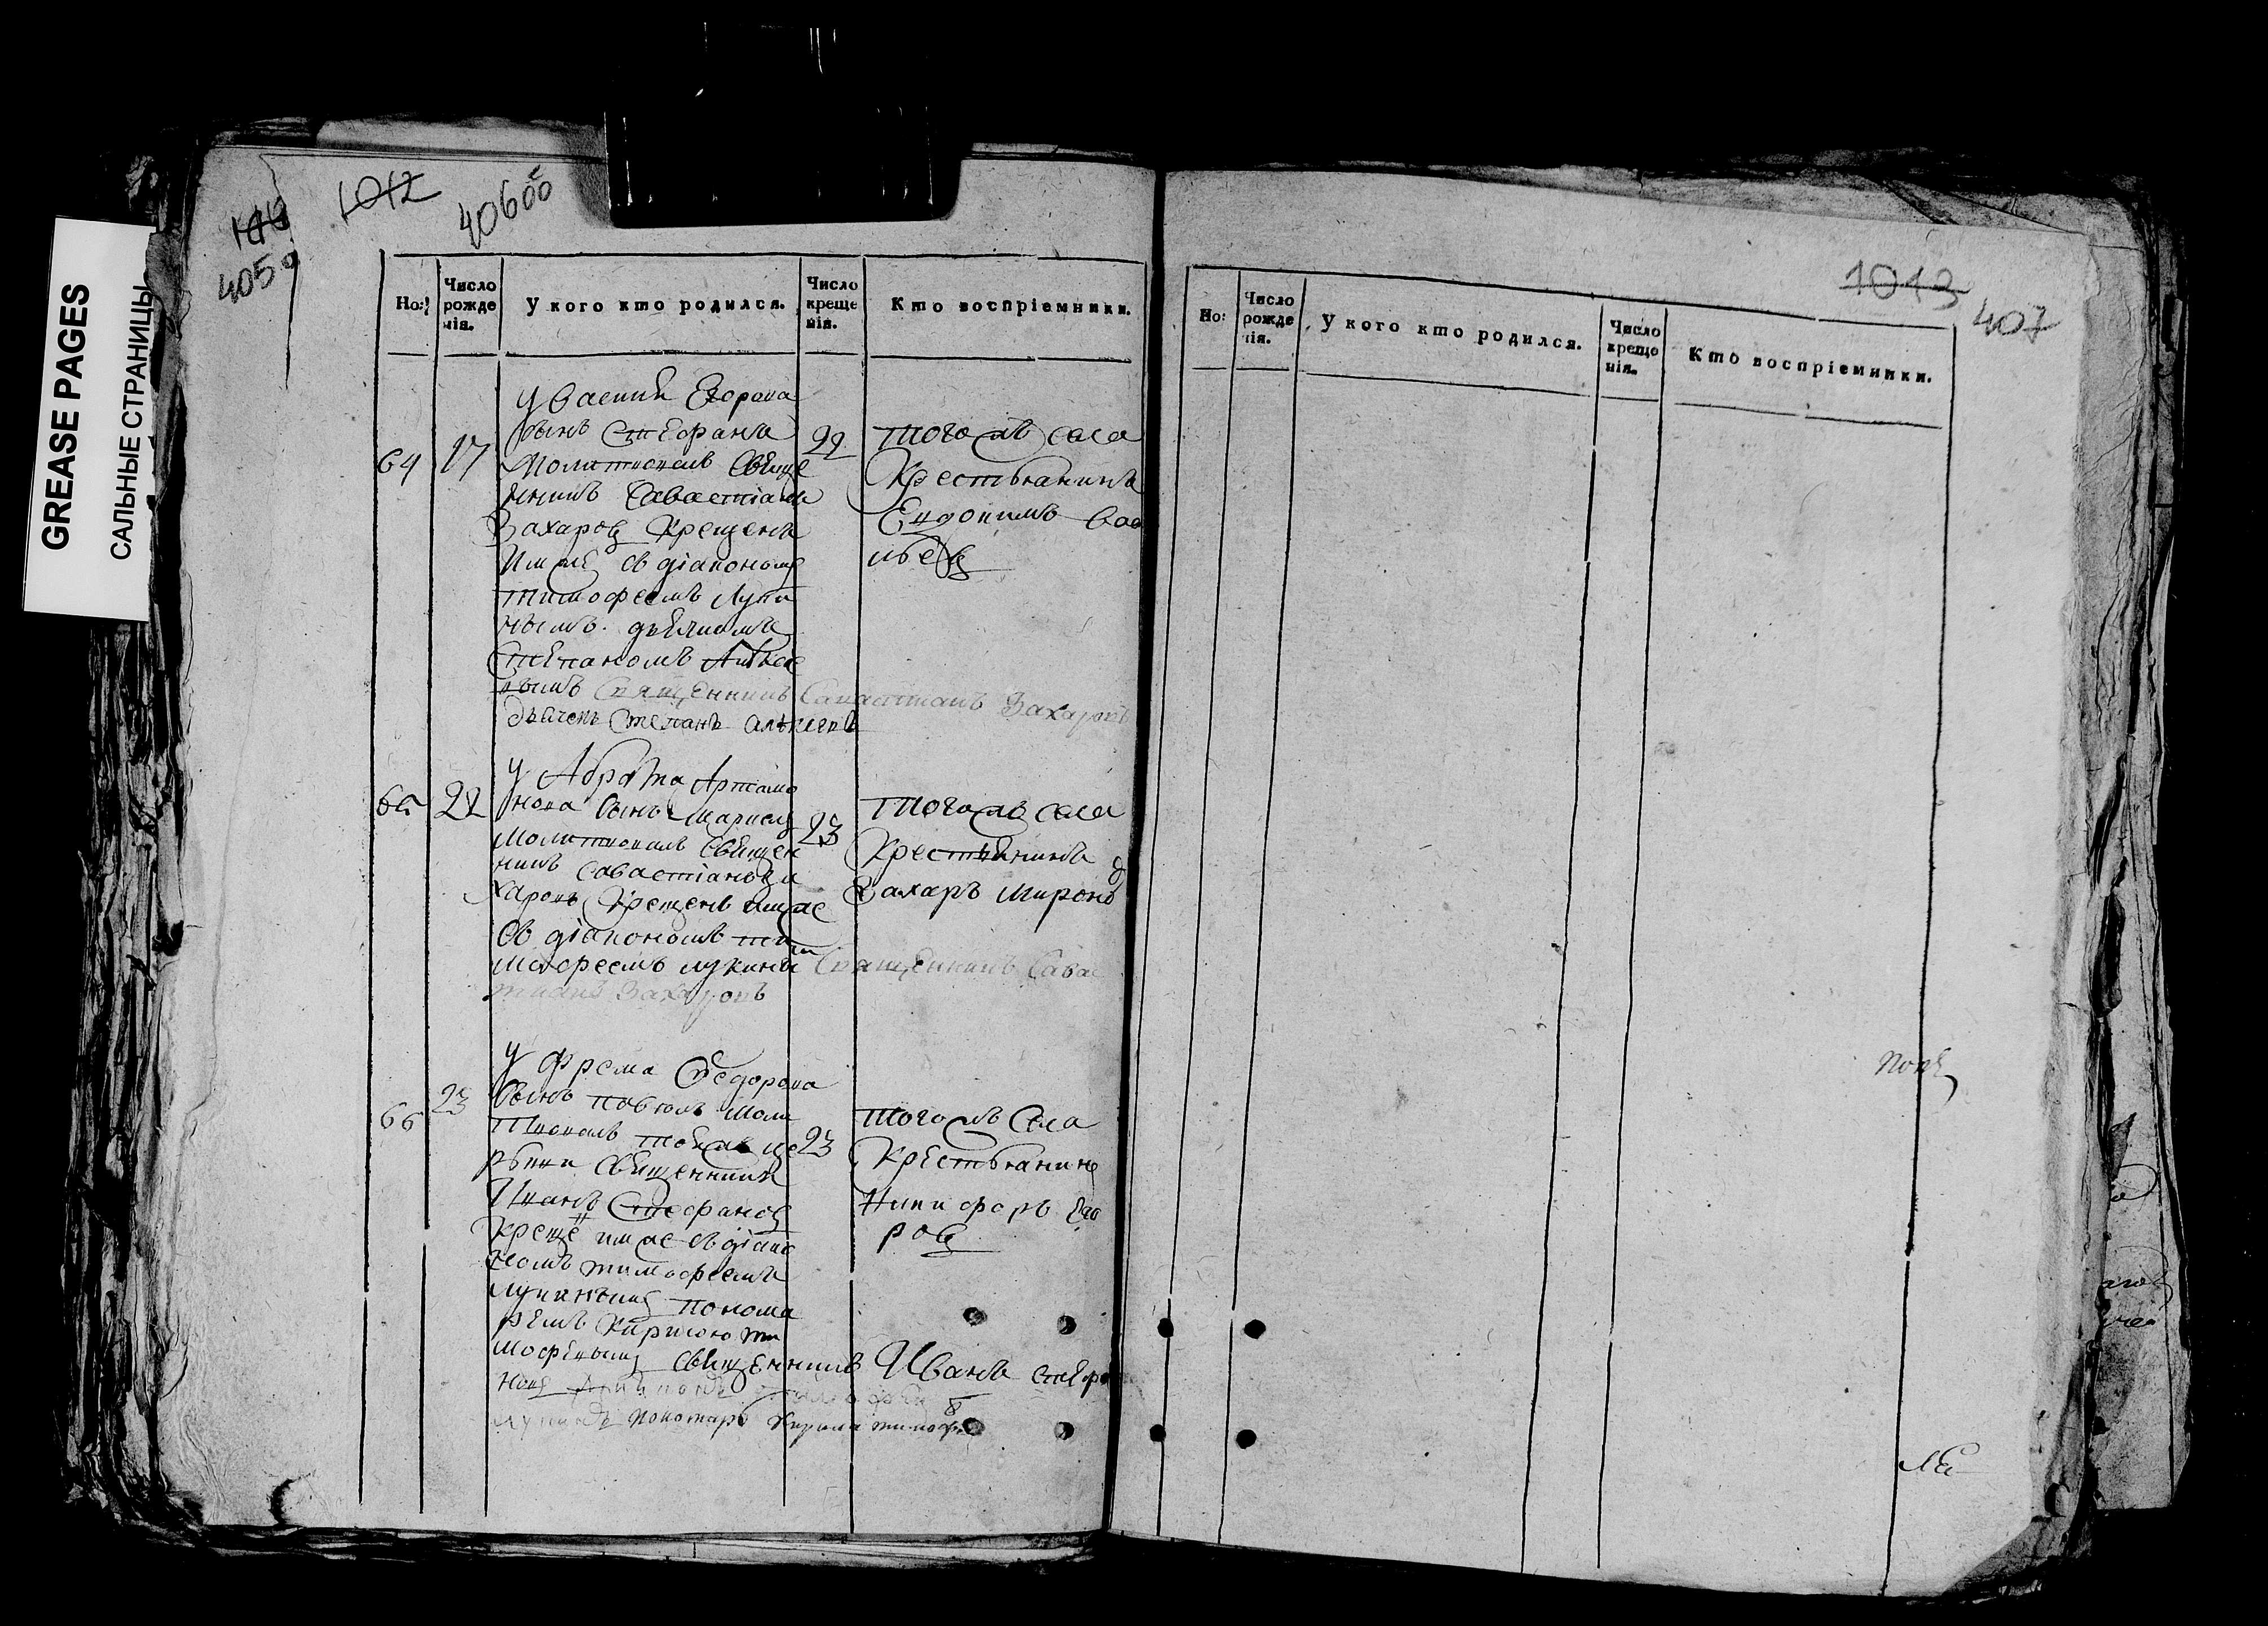 GREASE PAGES
САЛЬНЫЕ СТРАНИЦЫ
1012
406об
405
Но: Число рожденія. У кого кто родился. Число крещенія. Кто воспріемники.
64 17 22
У Василія Егорова
сынъ Стефанъ
молитвовалъ свяще
нникъ Савастіанъ
Захаровъ крещенъ
имже съ діакономъ
Тимофеемъ Луки
нымъ дьячкомъ
Степаномъ Алѣксе
вымъ Священникъ Савастианъ Захаровъ
дьячекъ Степанъ Алѣксевъ
тогожъ села
крестьянинъ
Евдокимъ Васи
льевъ
65 22 23
У Абрама Артамо
нова сынъ
молитвовалъ священ
никъ Савастіанъ За
харовъ крещенъ имже
съ діакономъ Ти
мофеемъ Лукинымъ Священникъ Савас
тианъ Захаровъ
тогожъ села
крестьянинъ
Захаръ Мироновъ
66 23 23
У Фрема Федорова
сынъ Павелъ моли
твовалъ тоежъ це
ркви священникъ
Иванъ Стефановъ
крещенъ имже съ діако
номъ Тимофеемъ
Лукинымъ понома
ремъ Кириломъ Ти
мофевымъ священникъ Иванъ Стефа
новъ
Лукинъ пономарь Кирила Тимофеевъ
тогожъ села
крестьянинъ
Никифоръ Его
ровъ
1013
407
Но: Число рожденія. У кого кто родился. Число крещенія. Кто воспріемники.